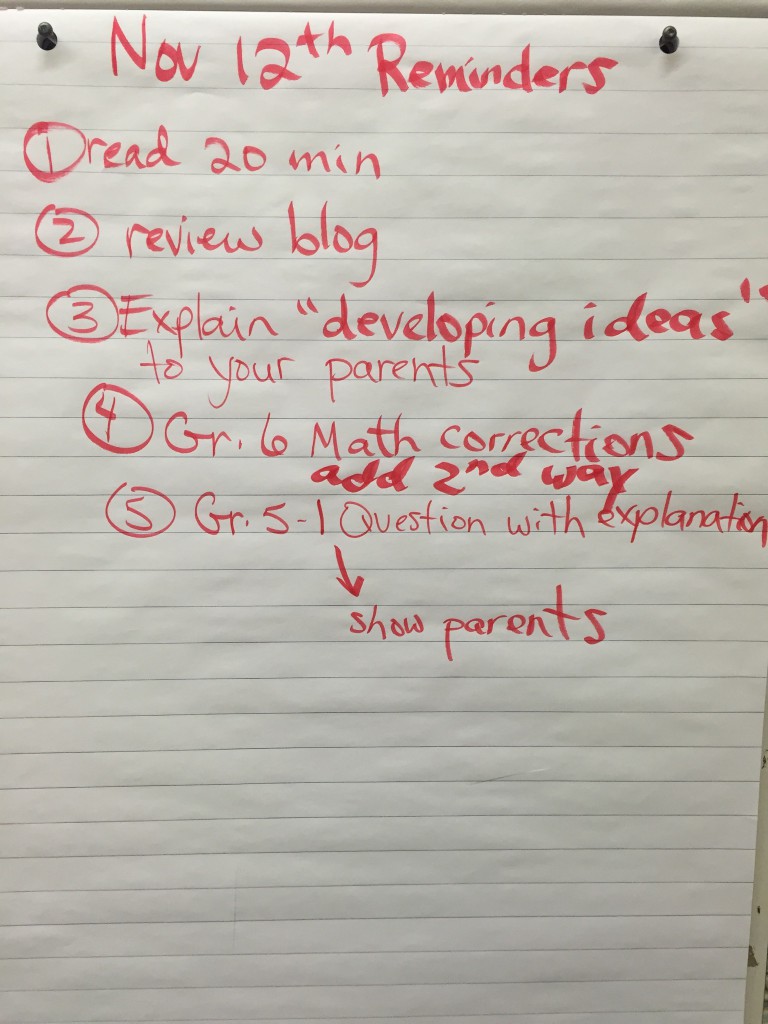 Nov 12th Reminders
① read 20 min
② review blog
③ Explain "developing ideas"
to your parents
④ Gr. 6 Math corrections
add 2nd way
⑤ Gr. 5-1 Question with explanation
↓
show parents